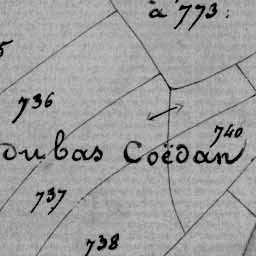 à 773.
5
736
740
du bas Coëdan
737
738